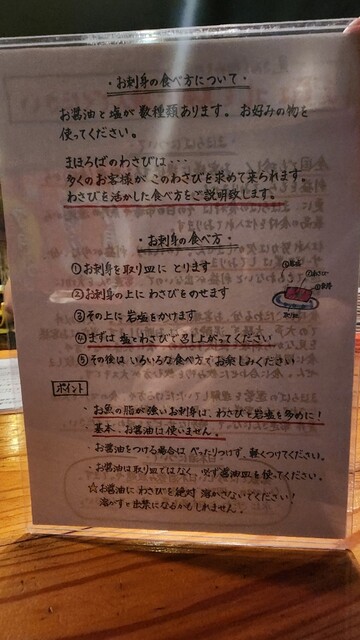 ・お刺身の食べ方について・
お醤油と塩が数種類あります。お好みの物を
使ってください。
まほろばのわさびは・・・
多くのお客様がこのわさびを求めて来られます。
わさびを活かした食べ方をご説明致します。
・お刺身の食べ方・
①お刺身を取り皿にとります
②お刺身の上にわさびをのせます
③その上に岩塩をかけます
④まずは塩とわさびで召し上がってください
⑤その後はいろいろな食べ方でお楽しみください
ポイント
・お魚の脂が強いお刺身は、わさびと岩塩を多めに!
基本、お醤油は使いません。
・お醤油をつける場合はべったりつけず、軽くつけてください。
・お醤油は取り皿ではなく、必ず醤油皿を使ってください。
☆お醤油にわさびを絶対溶かさないでください!
溶かすと出禁になるかもしれません。